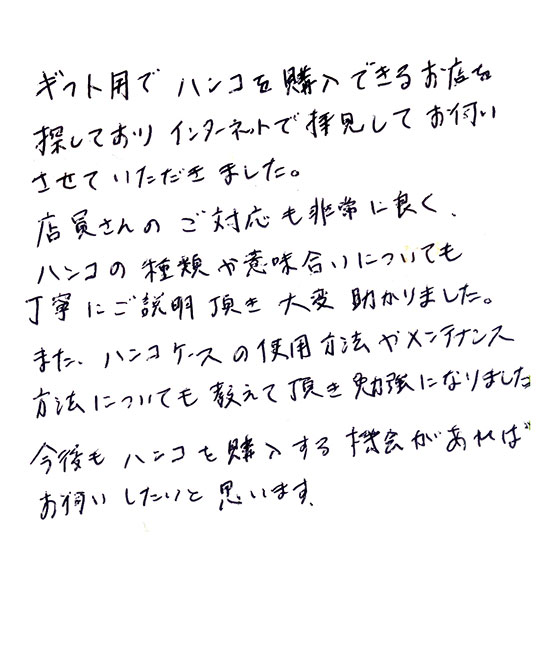 ギフト用で ハンコを購入できるお店を
探しており インターネットで拝見してお伺い
させていただきました。
店員さんのご対応も非常に良く、
ハンコの種類や意味合いについても
丁寧にご説明頂き大変助かりました。
また、ハンコケースの使用方法やメンテナンス
方法についても教えて頂き勉強になりました
今後もハンコを購入する機会があれば
お伺いしたいと思います。